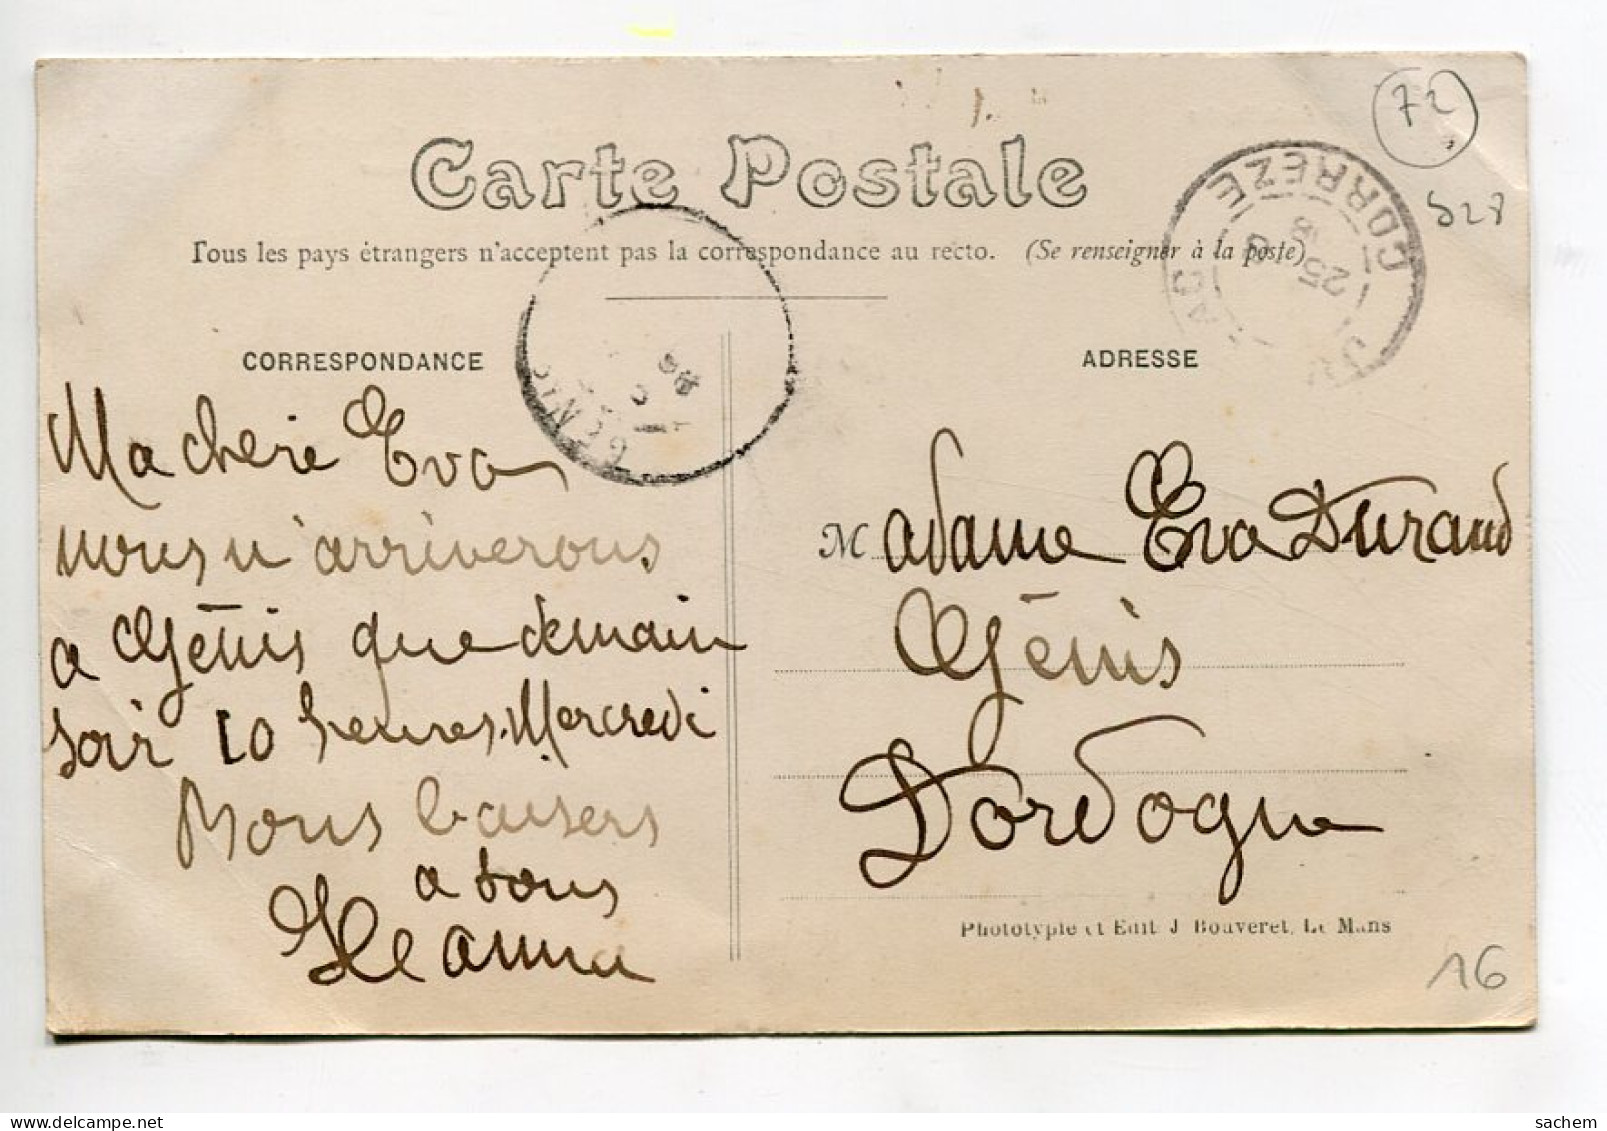 72
Carte Postale
S28
Tous les pays étrangers n'acceptent pas la correspondance au recto. (Se renseigner à la poste)
CORRÈZE
25
CORRESPONDANCE
Ma chère Eva
nous n'arriverons
a Génis que demain
soir 10 heures. Mercredi
Bons baisers
a tous
Jeanna
GENIS
ADRESSE
Madame Eva Durand
Génis
Dordogne
Phototypie et Edit. J. Bouveret, Le Mans
16
sachem